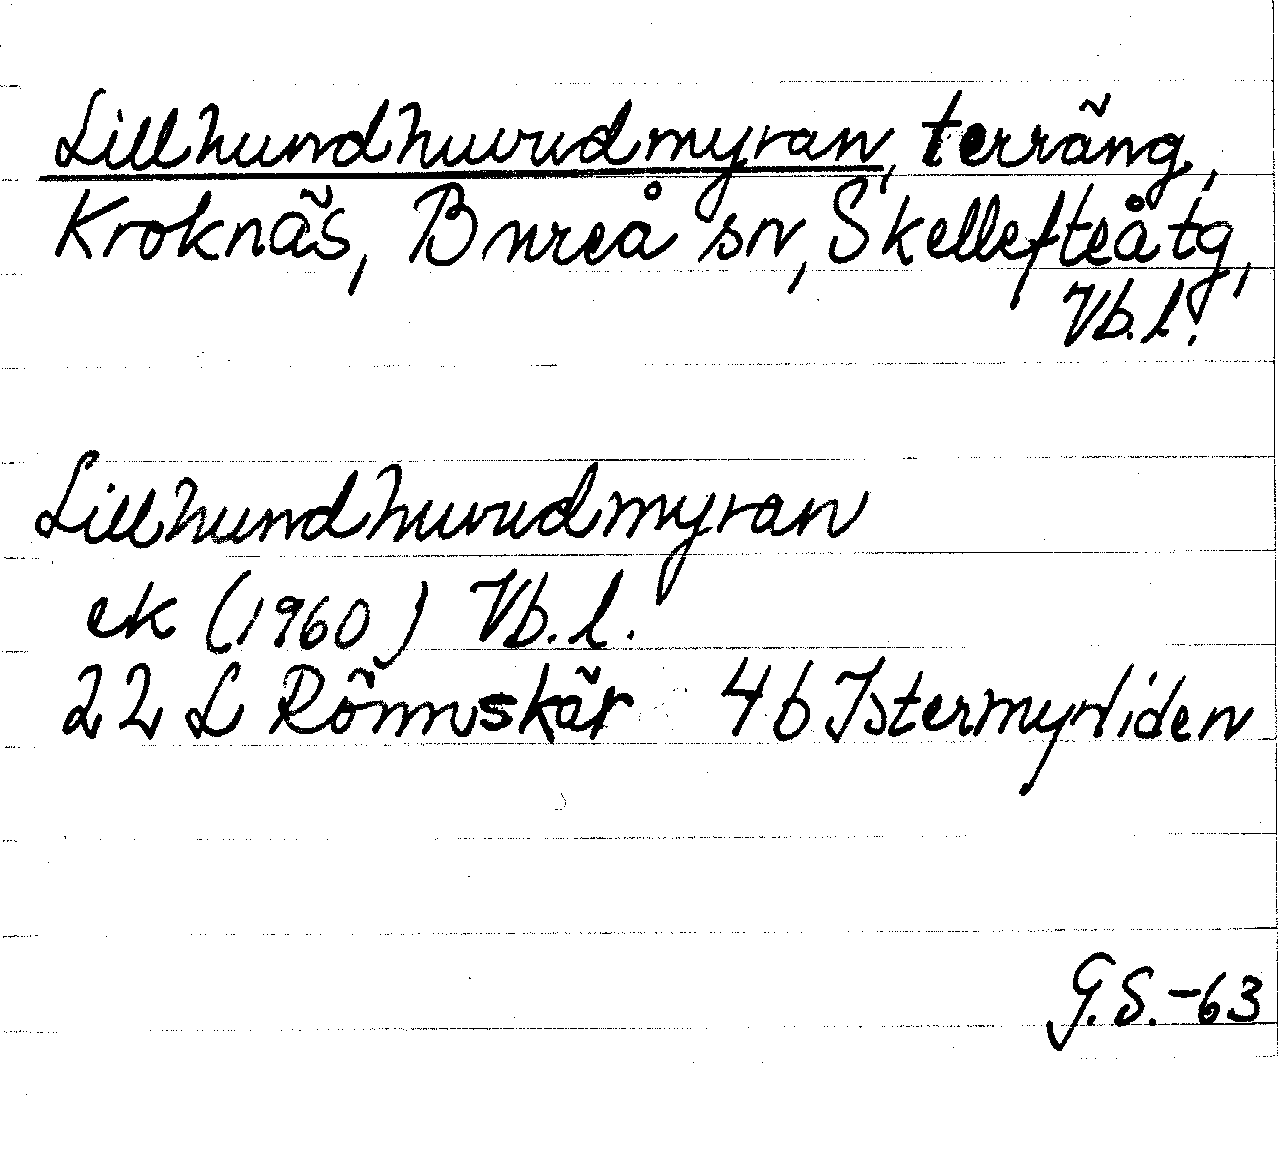 Lillhundhuvudmyran, terräng,
Kroknäs, Bureå sn, Skellefteå tg,
Vb.l.
Lillhundhuvudmyran
ek (1960) Vb.l.
22 L Rönnskär 4b Istermyrliden
G.S.-63